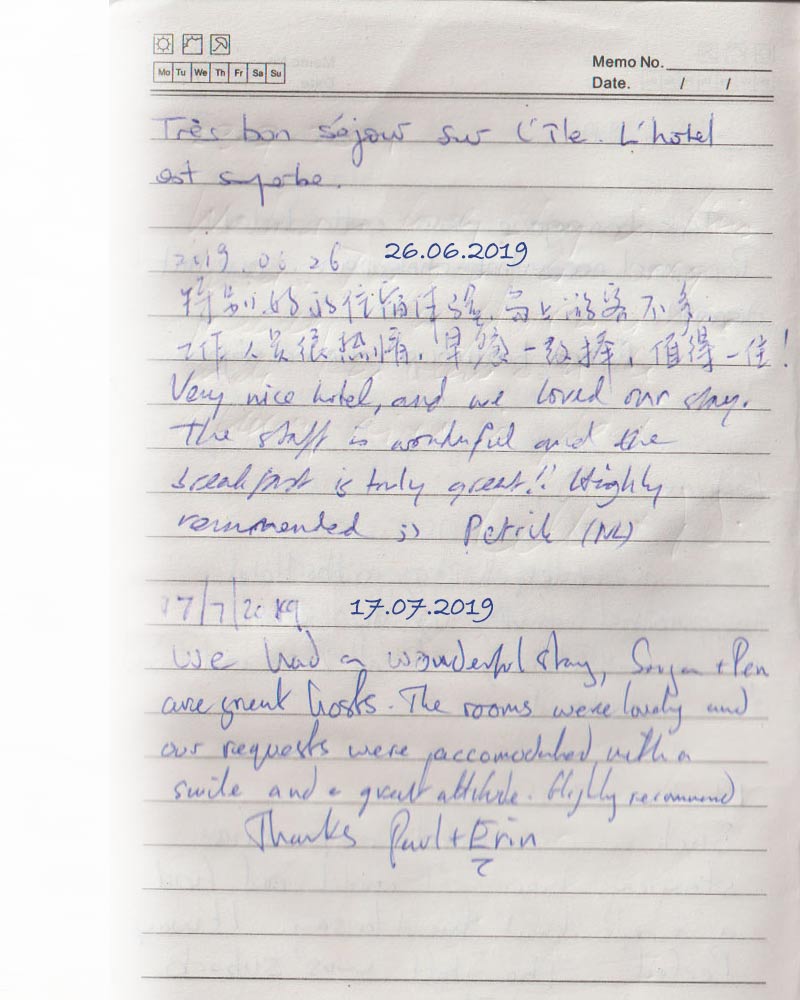 Mo Tu We Th Fr Sa Su
Memo No.
Date. / /
Très bon séjour sur l'île. L'hotel
est superbe.
2019.06.26 26.06.2019
特别的 住宿体验, 岛上游客不多,
工作人员很热情, 早餐 一致 , 值得一住!
Very nice hotel, and we loved our stay.
The staff is wonderful and the
breakfast is truly great!! Highly
recommended :) Patrick (NL)
17/7/2019 17.07.2019
We had a wonderful stay, + Pen
are great hosts. The rooms were lovely and
our requests were accomodated with a
smile and a great attitude. Highly recommend
Thanks Paul + Erin